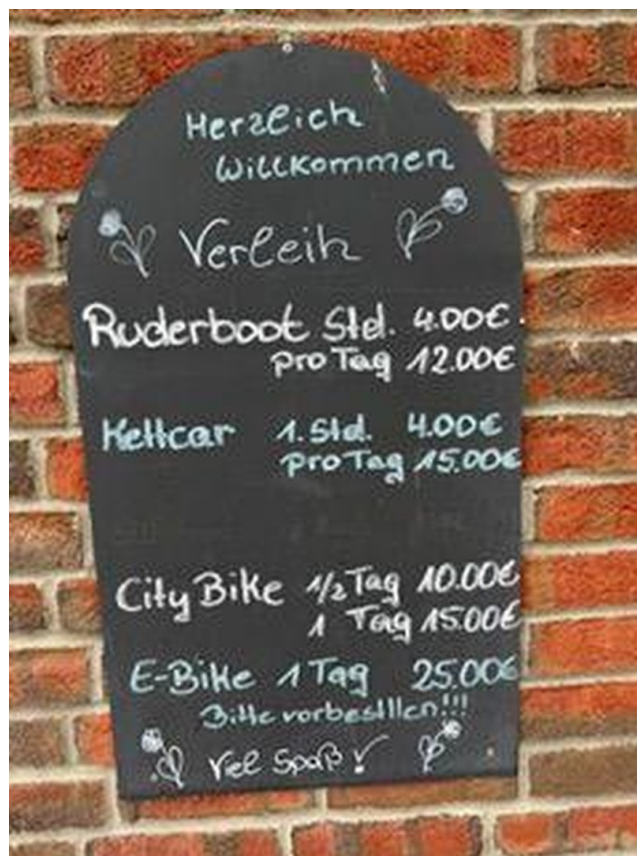 Herzlich
Willkommen
Verleih
Ruderboot Std. 4.00€
pro Tag 12.00€
Kettcar 1.Std. 4.00€
pro Tag 15.00€
City Bike 1/2 Tag 10.00€
1 Tag 15.00€
E-Bike 1 Tag 25.00€
Bitte vorbestllen!!!
Viel Spaß!